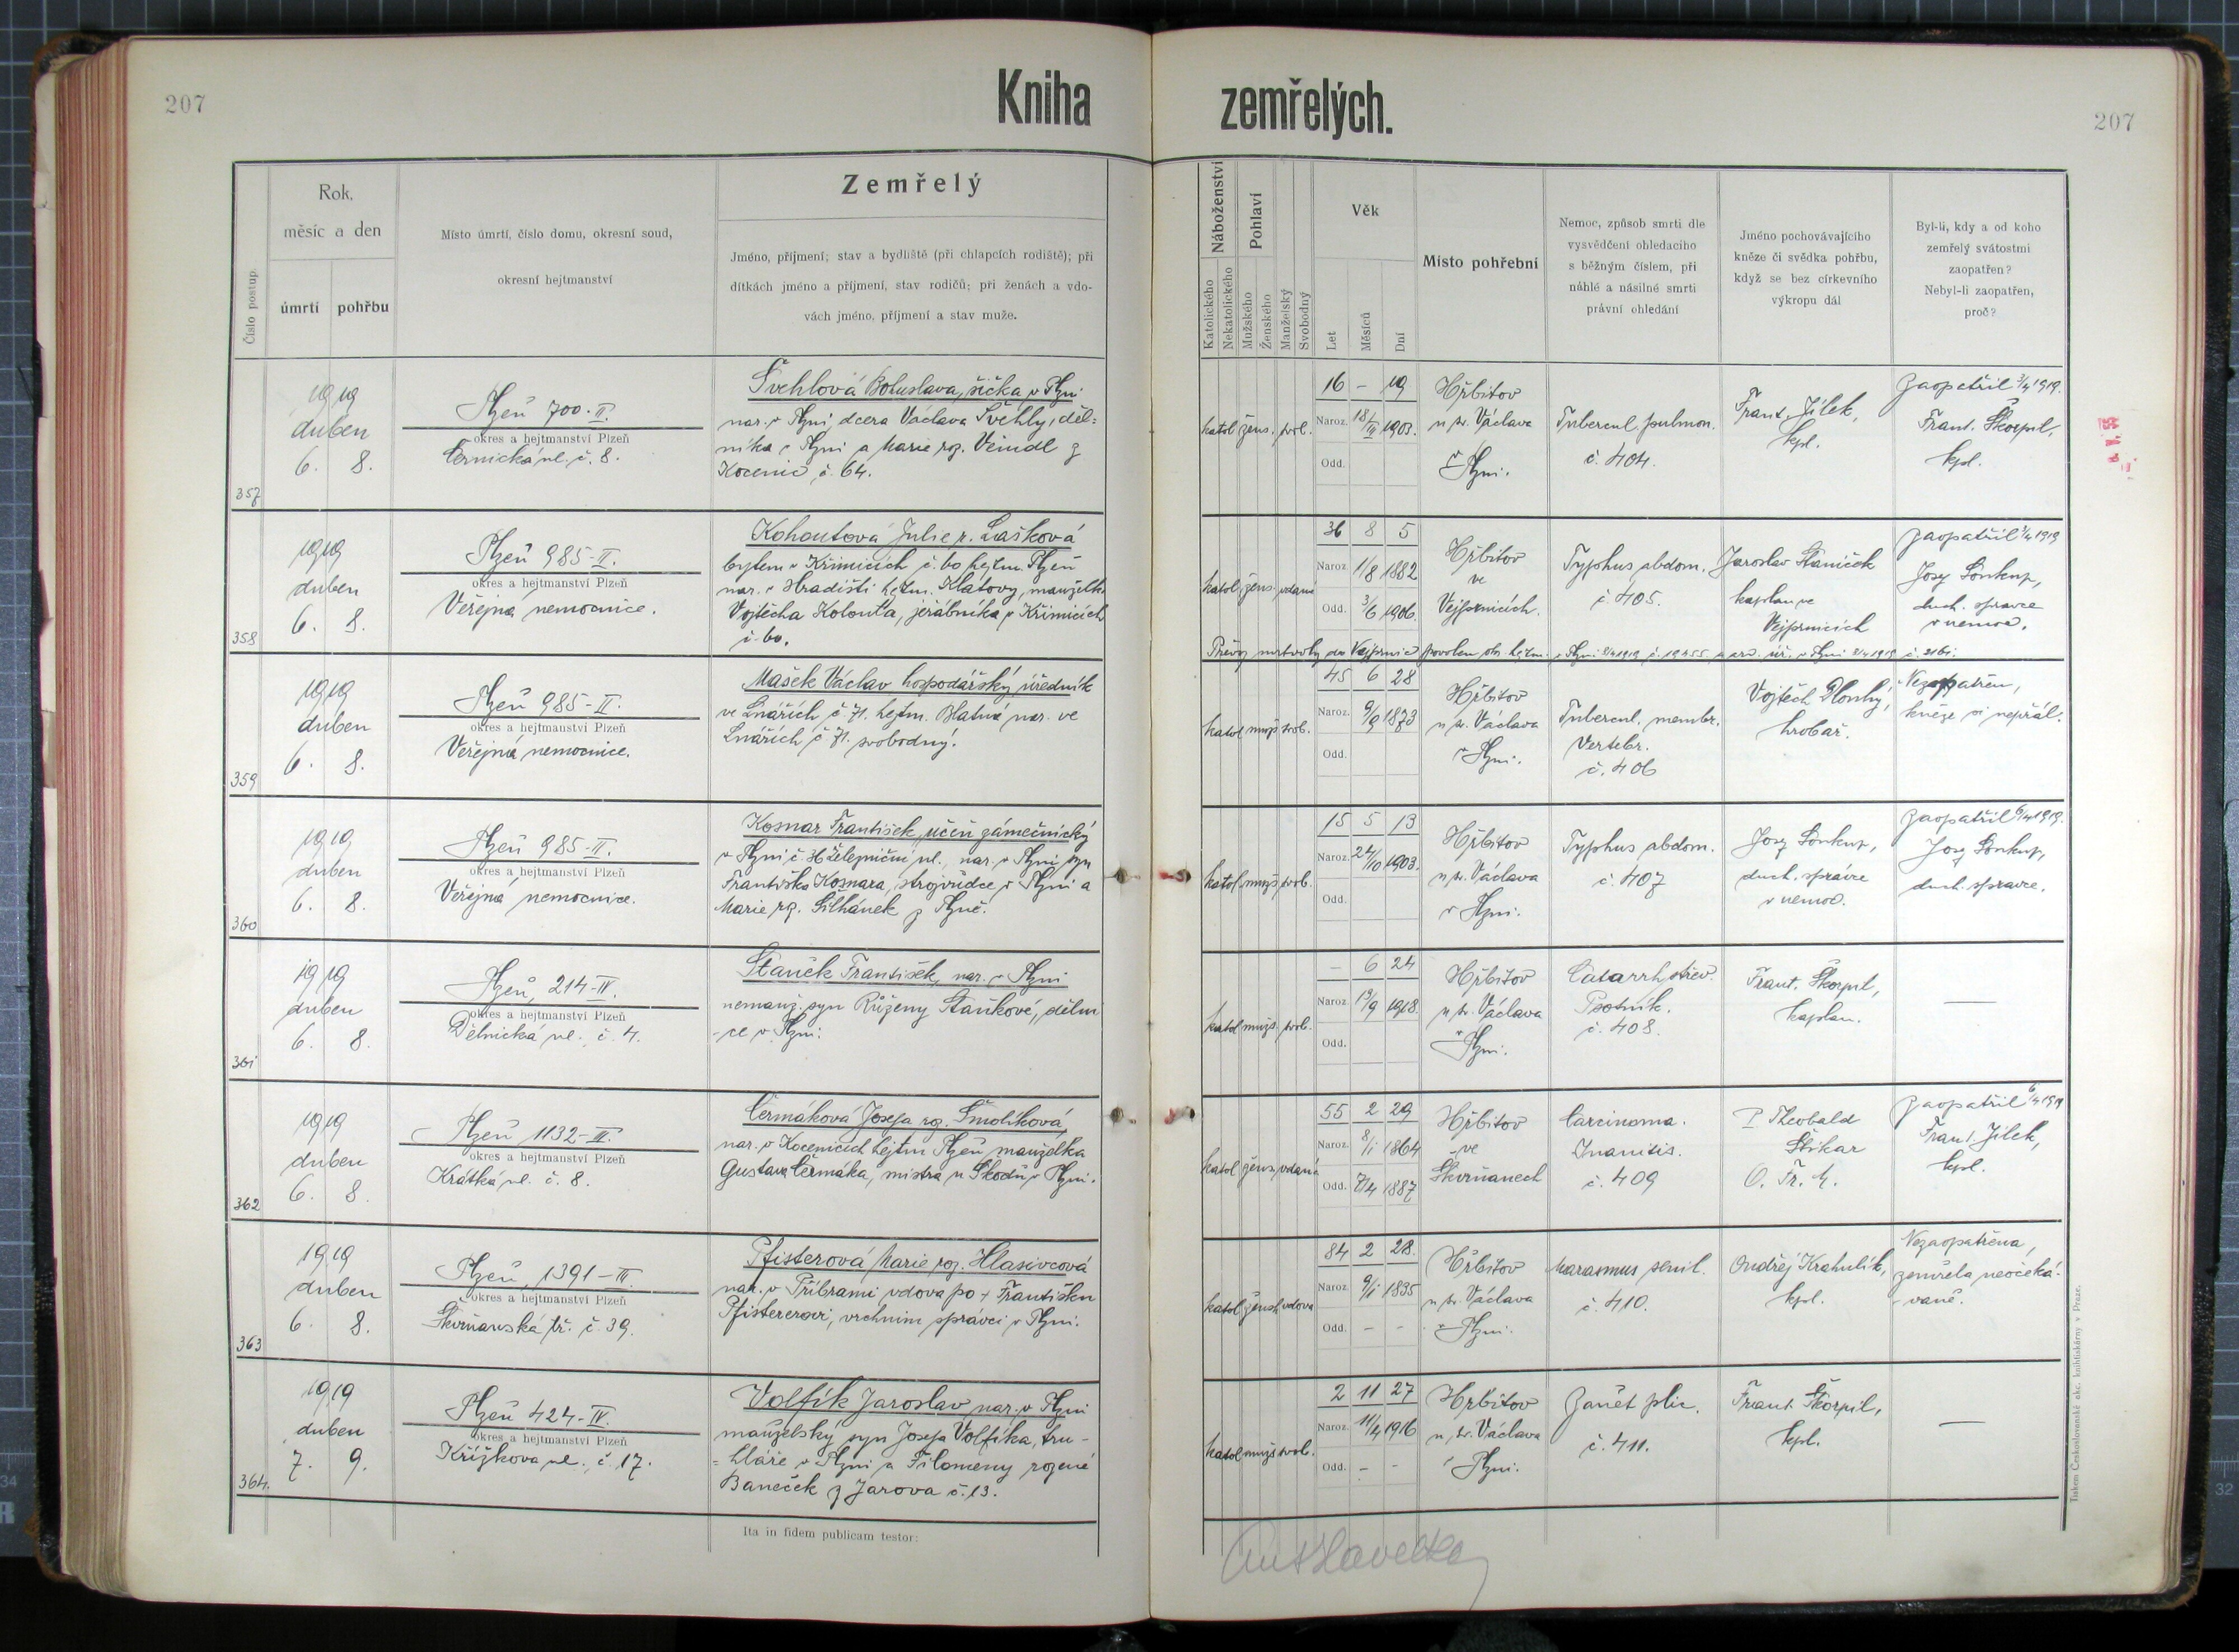 207
Kniha
zemřelých.
207
Číslo postup.
Rok,
měsíc a den
úmrtí
pohřbu
Místo úmrtí, číslo domu, okresní soud,
okresní hejtmanství
Zemřelý
Jméno, příjmení; stav a bydliště (při chlapcích rodiště); při
dítkách jméno a příjmení, stav rodičů; při ženách a vdo-
vách jméno, příjmení a stav muže.
Náboženství
Katolického
Nekatolického
Pohlaví
Mužského
Ženského
Manželský
Svobodný
Věk
Let
Měsíců
Dní
Místo pohřební
Nemoc, způsob smrti dle
vysvědčení ohledacího
s běžným číslem, při
náhlé a násilné smrti
právní ohledání
Jméno pochovávajícího
kněze či svědka pohřbu,
když se bez církevního
výkropu dál
Byl-li, kdy a od koho
zemřelý svátostmi
zaopatřen?
Nebyl-li zaopatřen,
proč?
357
1919
duben
6. 8.
Plzeň 700-II.
okres a hejtmanství Plzeň
Černická ul. č. 8.
Švehlová Bohuslava, šička v Plzni
nar. v Plzni, dcera Václava Švehly, děl=
níka v Plzni a Marie roz. Veindl z
Kocenic č. 64.
katol. žens. svob.
16 – 19
Naroz. 18/III 1903.
Odd.
Hřbitov
u sv. Václava
v Plzni.
Tubercul. pulmon.
č. 404.
Frant. Jílek,
kpl.
Zaopatřil 3/4 1919.
Frant. Škorpil,
kpl.
358
1919
duben
6. 8.
Plzeň 985-II.
okres a hejtmanství Plzeň
Veřejná nemocnice.
Kohoutová Julie r. Lašková
bytem v Křimicích č. 60 hejtm. Plzeň
nar. v Hradišti hejtm. Klatovy, manželka
Vojtěcha Kohouta, jeřábníka v Křimicích
č. 60.
katol. žens. vdaná
36 8 5
Naroz. 1/8 1882
Odd. 3/6 1906.
Hřbitov
ve
Vejprnicích.
Typhus abdom.
č. 405.
Jaroslav Staniček
kaplan ve
Vejprnicích
Zaopatřil 1919
Josef Soukup,
duch. správce
v nemoc.
Převoz mrtvoly do Vejprnic povolen okr. hejtm. v Plzni 8/4 1919 č. 19455 v Plzni 8/4 1919 č. 2161.
359
1919
duben
6. 8.
Plzeň 985-II.
okres a hejtmanství Plzeň
Veřejná nemocnice.
Mašek Václav hospodářský úředník
ve Lnářích č. 71. hejtm. Blatná nar. ve
Lnářích č. 71. svobodný.
katol. muž. svob.
45 6 28
Naroz. 9/9 1873
Odd.
Hřbitov
u sv. Václava
v Plzni.
Tubercul. membr.
Vertebr.
č. 406
Vojtěch Dlouhý,
hrobař.
Nezaopatřen,
kněze si nepřál.
360
1919
duben
6. 8.
Plzeň 985-II.
okres a hejtmanství Plzeň
Veřejná nemocnice.
Kosnar František, učeň zámečnický
v Plzni č. 36 Železniční ul., nar. v Plzni syn
Františka Kosnara, strojvůdce, v Plzni a
Marie roz. Šilhánek z Plzně.
katol. muž. svob.
15 5 13
Naroz. 24/10 1903.
Odd.
Hřbitov
u sv. Václava
v Plzni.
Typhus abdom.
č. 407
Josef Soukup,
duch. správce
v nemoc.
Zaopatřil 6/4 1919.
Josef Soukup,
duch. správce.
361
1919
duben
6. 8.
Plzeň, 214-IV.
okres a hejtmanství Plzeň
Dělnická ul. č. 4.
Staněk František, nar. v Plzni
nemanž. syn Růženy Staňkové, dělni
-ce v Plzni.
katol. muž. svob.
– 6 24
Naroz. 13/9 1918.
Odd.
Hřbitov
u sv. Václava
v Plzni.
Catarrh střev.
Psotník.
č. 408.
Frant. Škorpil,
kaplan.
—
362
1919
duben
6. 8.
Plzeň 1132-III.
okres a hejtmanství Plzeň
Krátká ul. č. 8.
Čermáková Josefa roz. Smolíková,
nar. v Kocenicích hejtm. Plzeň manželka
Gustava Čermáka, mistra u Škodů v Plzni.
katol. žens. vdaná
55 2 29
Naroz. 8/1 1864
Odd. 7/4 1887
Hřbitov
ve
Škvrňanech
Carcinoma.
Inanitis.
č. 409
P. Theobald
O. Fr. M.
Zaopatřil 6/4 1919
Frant. Jílek,
kpl.
363
1919
duben
6. 8.
Plzeň, 1391-III.
okres a hejtmanství Plzeň
Škvrňanská tř. č. 39.
Pfisterová Marie roz. Hlasivcová
nar. v Příbrami vdova po + Františku
Pfistererovi, vrchním správci v Plzni.
katol. žensk. vdova
84 2 28.
Naroz. 9/1 1835
Odd. – –
Hřbitov
u sv. Václava
v Plzni.
Marasmus senil.
č. 410.
Ondřej Krahulík,
kpl.
Nezaopatřena,
zemřela neočeká-
vaně.
364.
1919
duben
7. 9.
Plzeň 424-IV.
okres a hejtmanství Plzeň
Křížkova ul. č. 17.
Volfík Jaroslav nar. v Plzni
manželský syn Josefa Volfíka, tru-
=hláře v Plzni a Filomeny rozené
Baneček z Jarova č. 13.
katol. muž. svob.
2 11 27
Naroz. 11/4 1916
Odd. – –
Hřbitov
u sv. Václava
v Plzni.
Zánět plic.
č. 411.
Frant. Škorpil,
kpl.
—
Ita in fidem publicam testor:
Tiskem Českoslovanské akc. knihtiskárny v Praze.